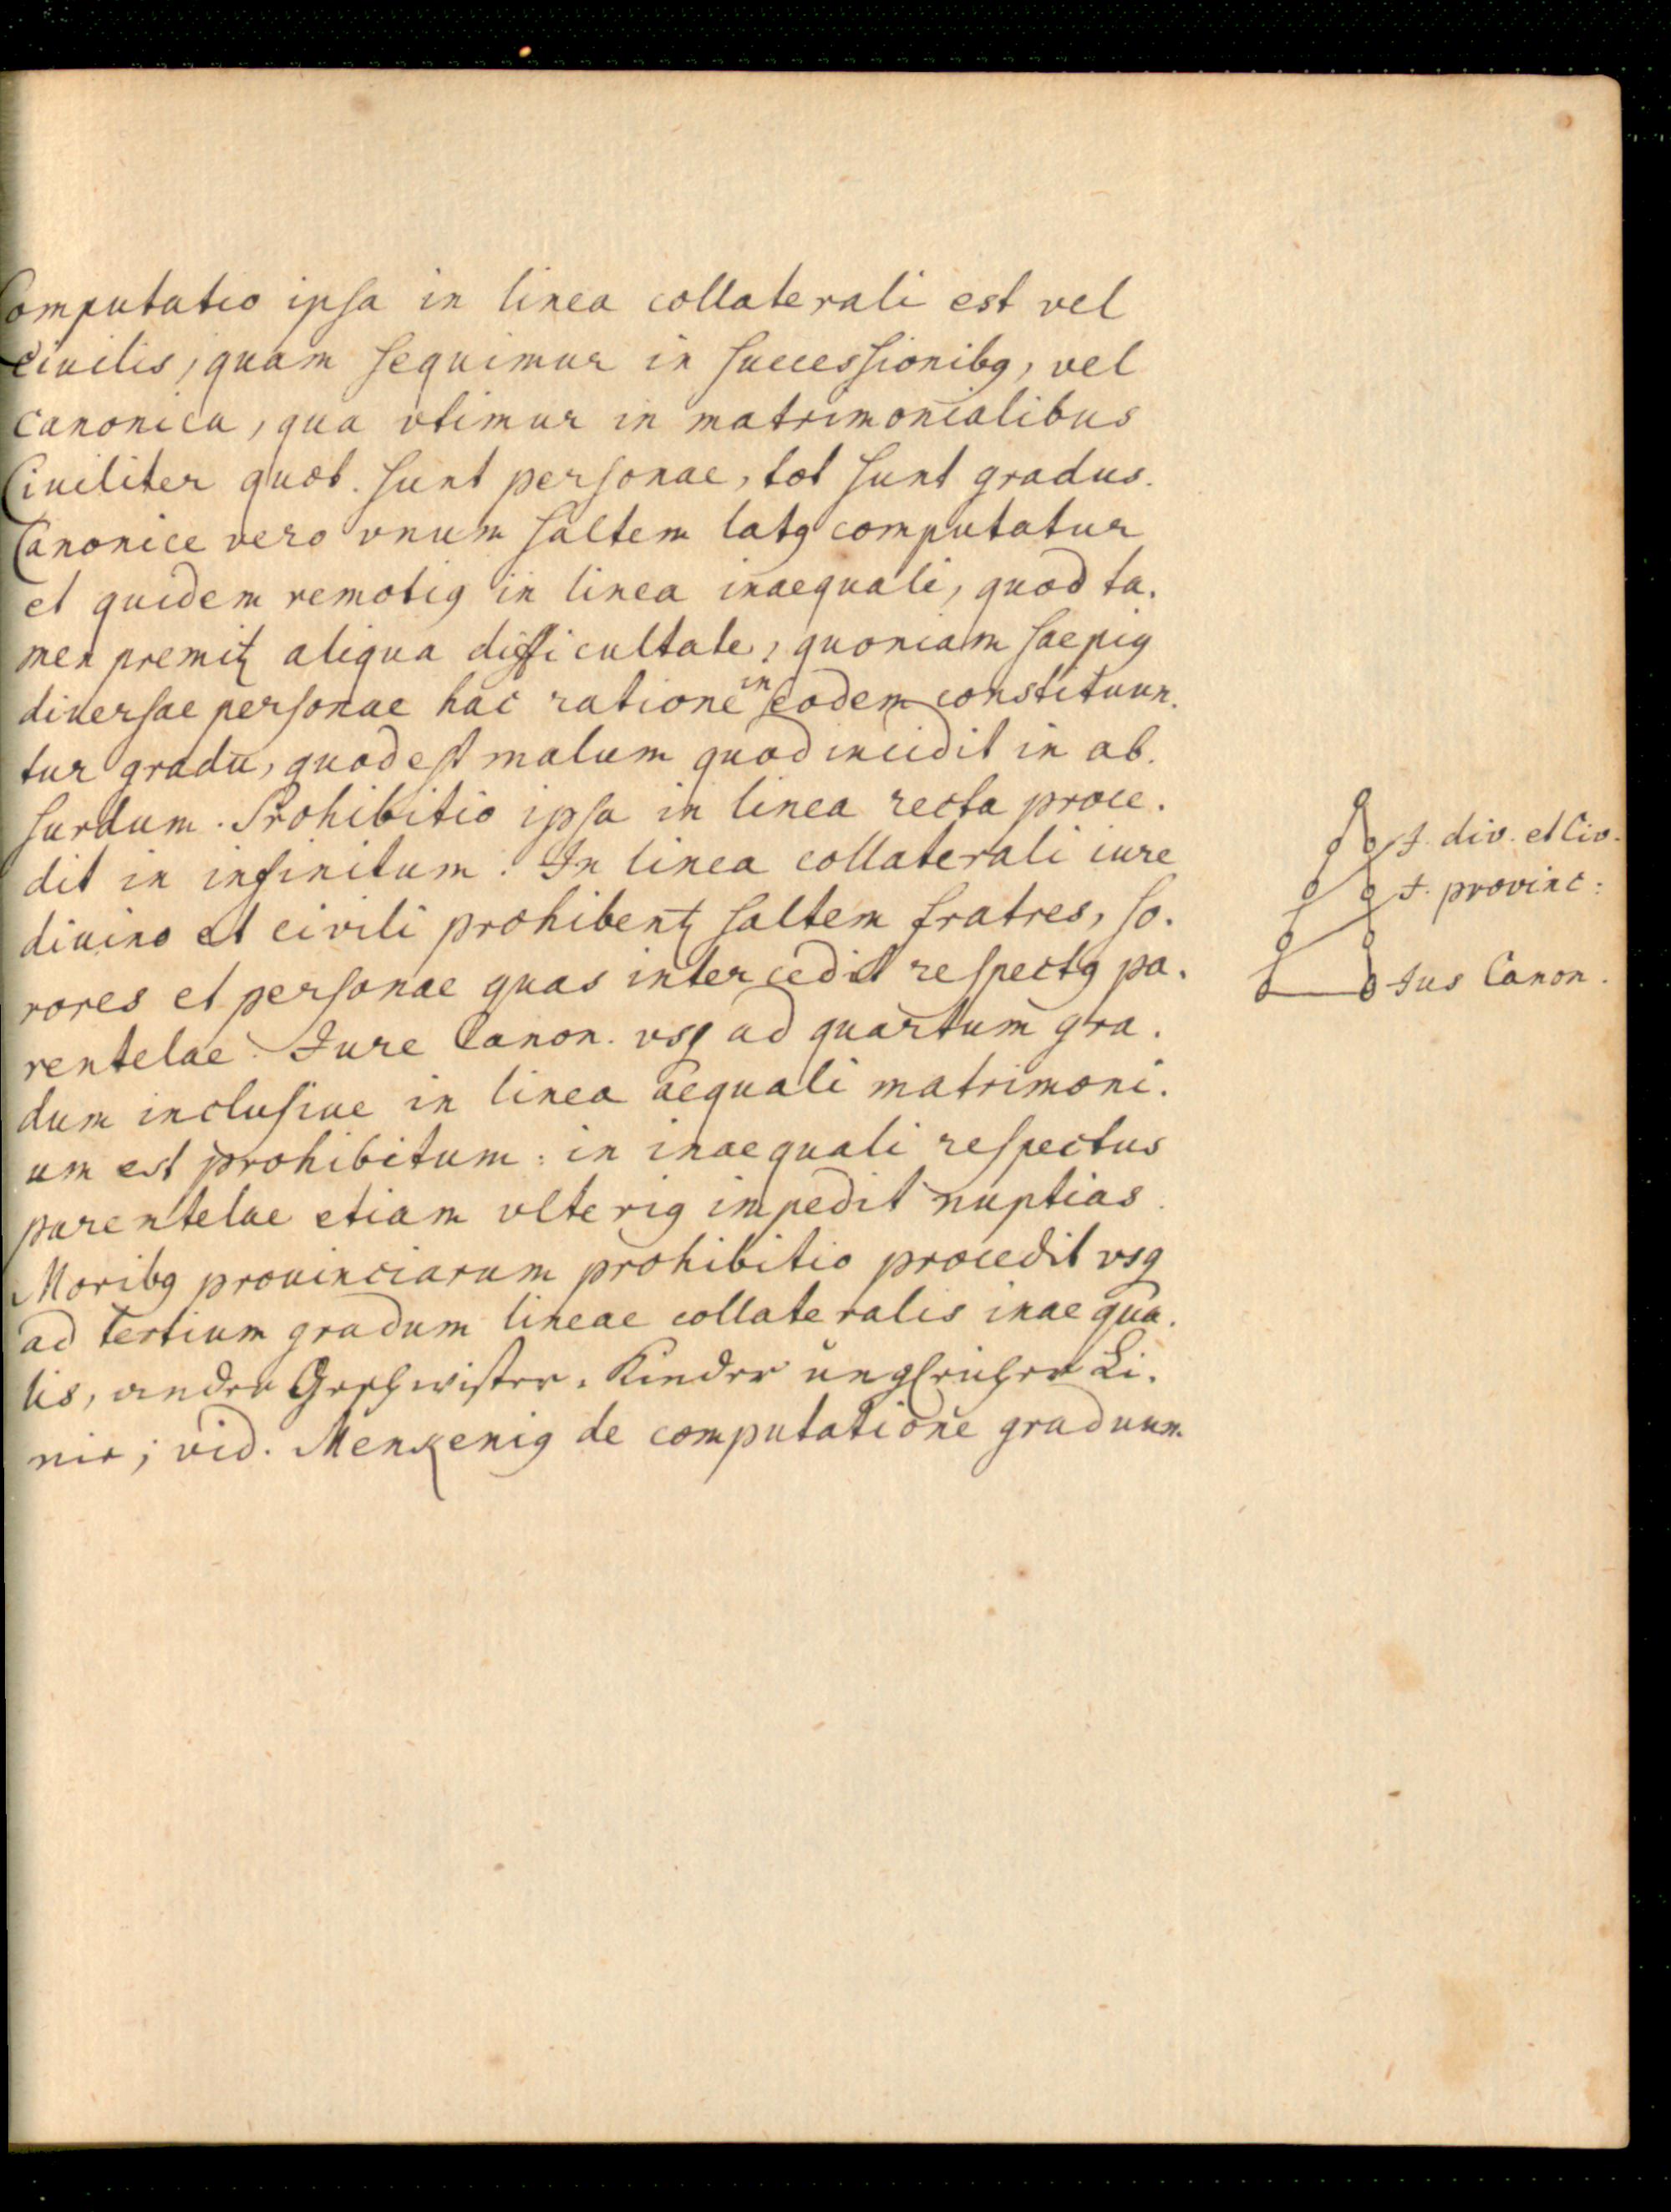 Computatio ipsa in linea collaterali est vel
civilis, quam sequimur in successionibꝰ, vel
canonica, qua vtimur in matrimonialibus
Civiliter quot. sunt personae, tot sunt gradus.
Canonice vero vnum saltem latꝰ computatur
et quidem remotiꝰ in linea inaequali, quod ta-
men premitꝛ aliqua difficultate, quoniam saepiꝰ
diversae personae hac ratione in eodem constituun-
tur gradu, quod est malum quod incidit in ab-
surdum. Prohibitio ipsa in linea recta proce-
dit in infinitum. In linea collaterali iure
diuino et civili prohibentꝛ saltem fratres, so-
rores et personae quas intercedit respectꝰ pa-
rentelae. Jure Canon. vsqꝫ ad quartum gra-
dum inclusiue in linea aequali matrimoni-
um est prohibitum: in inaequali respectus
parentelae etiam vlteriꝰ impedit nuptias.
Moribꝰ prouinciarum prohibitio procedit vsqꝫ
ad tertium gradum lineae collateralis inaequa-
lis, ander Geschwister-Kinder ungleicher Li-
nie; vid. Menkeniꝰ de computatione graduum.
J. div. et Civ.
J. provinc:
Jus Canon.